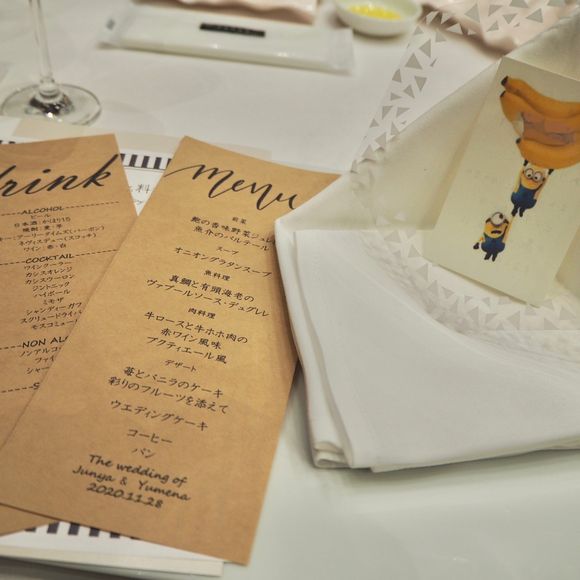 Drink
ALCOHOL
ビール
日本酒:かほり15
焼酎:麦・芋
キー:アーリータイムズ(バーボン)
ネヴィスデュー(スコッチ)
ワイン:赤・白
COCKTAIL
ワインクーラー
カシスオレンジ
カシスウーロン
ジントニック
ハイボール
ミモザ
シャンディーガフ
スクリュードライバ
モスコミュー
NON AL
ノンアルコ
ファイ
シャー
S
料
Menu
前菜
鮑の香味野菜ジュレ
魚介のバルテール
スープ
オニオングラタンスープ
魚料理
真鯛と有頭海老の
ヴァプールソース・デュグレレ
肉料理
牛ロースと牛ホホ肉の
赤ワイン風味
ブクティエール風
デザート
苺とバニラのケーキ
彩りのフルーツを添えて
ウエディングケーキ
コーヒー
パン
The wedding of
Junya & Yumena
2020.11.28